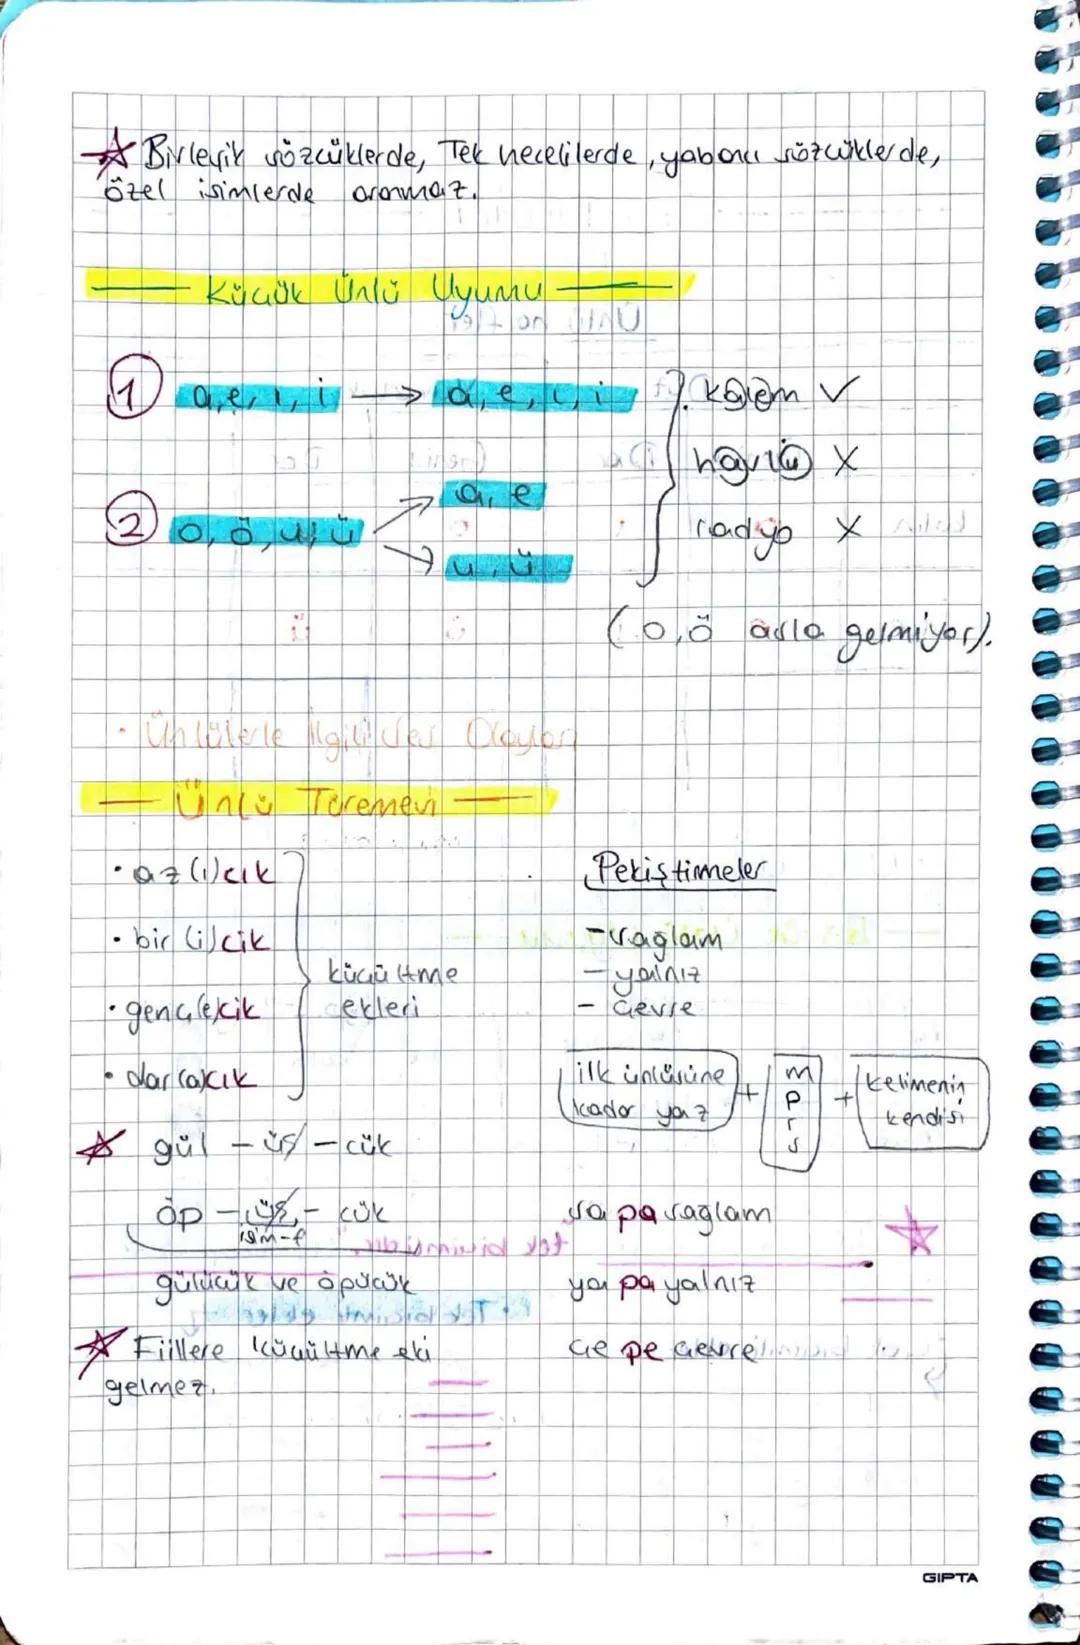 ☆ Birleşik sözcüklerde, Tek hecelilerde, yabancı sözcüklerde,
özel isimlerde aranmaz.
Küçük Ünlü Uyumu
1 a, e, ı, i → a, e, ı, i
kalem ✓
havlu X
2 o, ö, u, ü
a, e
u, ü
radyo X
(o, ö asla gelmiyor).
• Ünlülerle İlgili Ses Olayları
Ünlü Türemesi
• az (ı) cık
• bir (i) cik
• genç (e) cik
• dar (a) cık
küçültme
ekleri
☆ gül - üş - cük
öp - üş - cük
isim-f
gülücük ve öpücük
☆ Fiillere küçültme eki
gelmez.
Pekiştirmeler
- sağlam
- yalnız
- çevre
ilk ünlüsüne
kadar yaz
+
m
p
r
s
+
kelimenin
kendisi
sa pa sağlam
ya pa yalnız
çe pe çevre
GIPTA